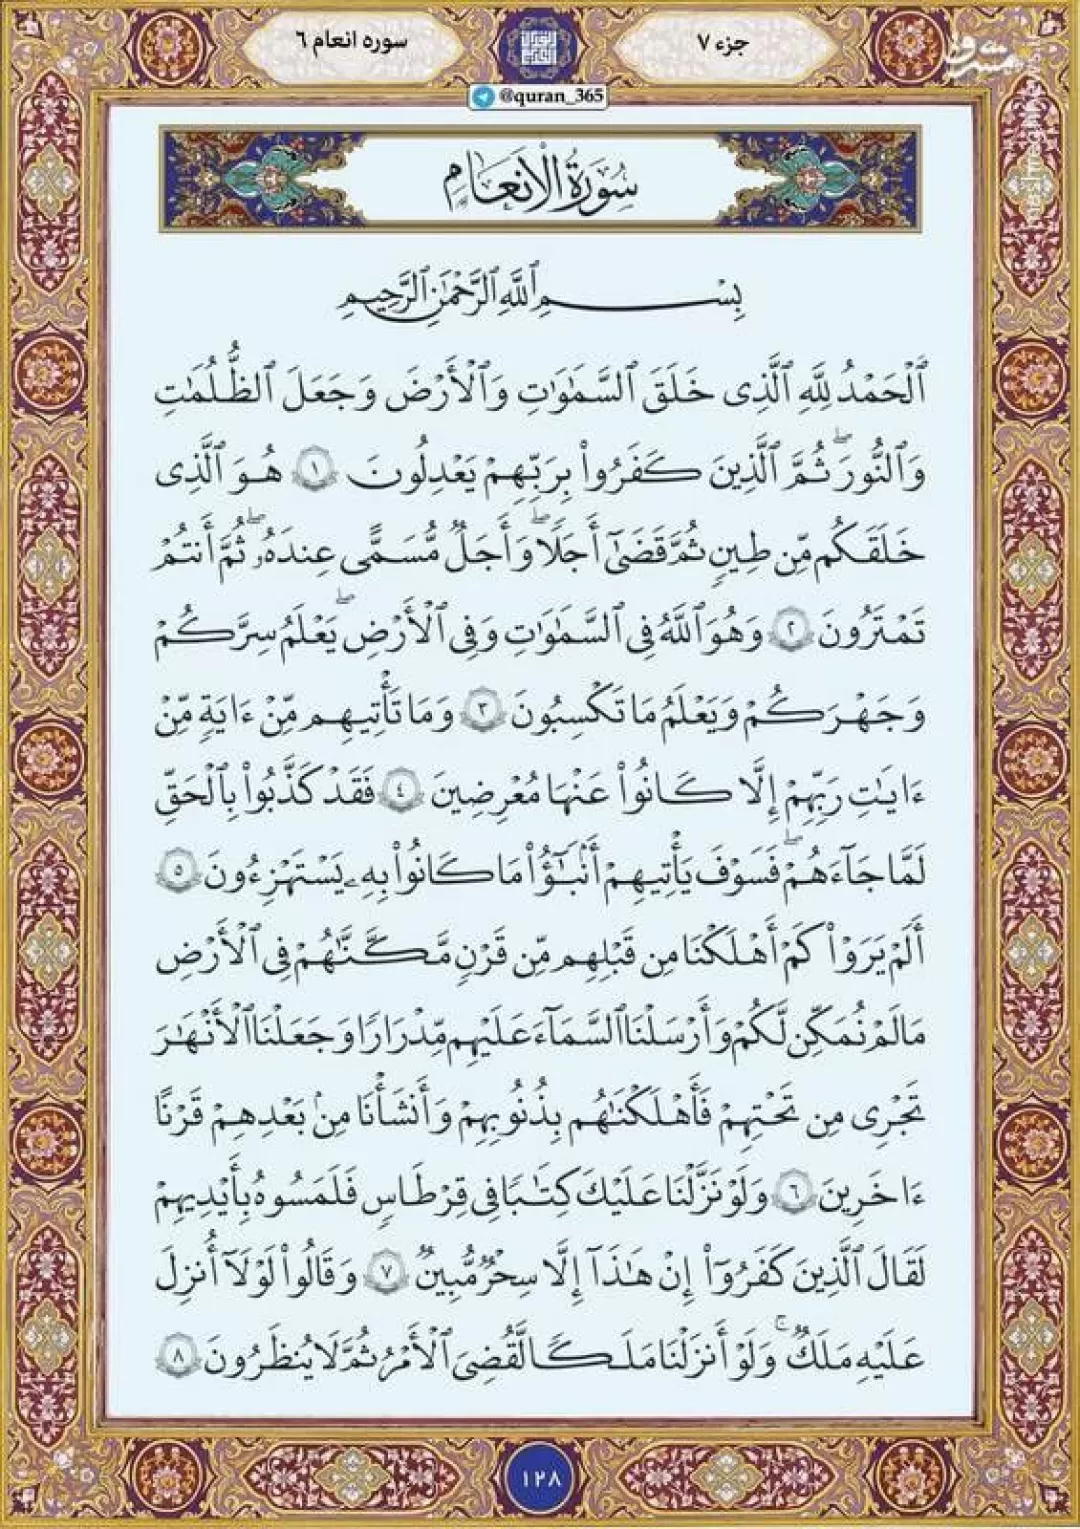 جزء ۷
سوره انعام ۶
مشرق
mashreghnews
@quran_365
سُورَةُ الْأَنْعَامِ
بِسْمِ ٱللَّهِ ٱلرَّحْمَٰنِ ٱلرَّحِيمِ
ٱلْحَمْدُ لِلَّهِ ٱلَّذِى خَلَقَ ٱلسَّمَٰوَٰتِ وَٱلْأَرْضَ وَجَعَلَ ٱلظُّلُمَٰتِ
وَٱلنُّورَ ۖ ثُمَّ ٱلَّذِينَ كَفَرُوا۟ بِرَبِّهِمْ يَعْدِلُونَ ١ هُوَ ٱلَّذِى
خَلَقَكُم مِّن طِينٍ ثُمَّ قَضَىٰٓ أَجَلًا ۖ وَأَجَلٌ مُّسَمًّى عِندَهُۥ ۖ ثُمَّ أَنتُمْ
تَمْتَرُونَ ٢ وَهُوَ ٱللَّهُ فِى ٱلسَّمَٰوَٰتِ وَفِى ٱلْأَرْضِ ۖ يَعْلَمُ سِرَّكُمْ
وَجَهْرَكُمْ وَيَعْلَمُ مَا تَكْسِبُونَ ٣ وَمَا تَأْتِيهِم مِّنْ ءَايَةٍ مِّنْ
ءَايَٰتِ رَبِّهِمْ إِلَّا كَانُوا۟ عَنْهَا مُعْرِضِينَ ٤ فَقَدْ كَذَّبُوا۟ بِٱلْحَقِّ
لَمَّا جَآءَهُمْ ۖ فَسَوْفَ يَأْتِيهِمْ أَنۢبَٰٓؤُا۟ مَا كَانُوا۟ بِهِۦ يَسْتَهْزِءُونَ ٥
أَلَمْ يَرَوْا۟ كَمْ أَهْلَكْنَا مِن قَبْلِهِم مِّن قَرْنٍ مَّكَّنَّٰهُمْ فِى ٱلْأَرْضِ
مَا لَمْ نُمَكِّن لَّكُمْ وَأَرْسَلْنَا ٱلسَّمَآءَ عَلَيْهِم مِّدْرَارًا وَجَعَلْنَا ٱلْأَنْهَٰرَ
تَجْرِى مِن تَحْتِهِمْ فَأَهْلَكْنَٰهُم بِذُنُوبِهِمْ وَأَنشَأْنَا مِنۢ بَعْدِهِمْ قَرْنًا
ءَاخَرِينَ ٦ وَلَوْ نَزَّلْنَا عَلَيْكَ كِتَٰبًا فِى قِرْطَاسٍ فَلَمَسُوهُ بِأَيْدِيهِمْ
لَقَالَ ٱلَّذِينَ كَفَرُوٓا۟ إِنْ هَٰذَآ إِلَّا سِحْرٌ مُّبِينٌ ٧ وَقَالُوا۟ لَوْلَآ أُنزِلَ
عَلَيْهِ مَلَكٌ ۖ وَلَوْ أَنزَلْنَا مَلَكًا لَّقُضِىَ ٱلْأَمْرُ ثُمَّ لَا يُنظَرُونَ ٨
١٢٨